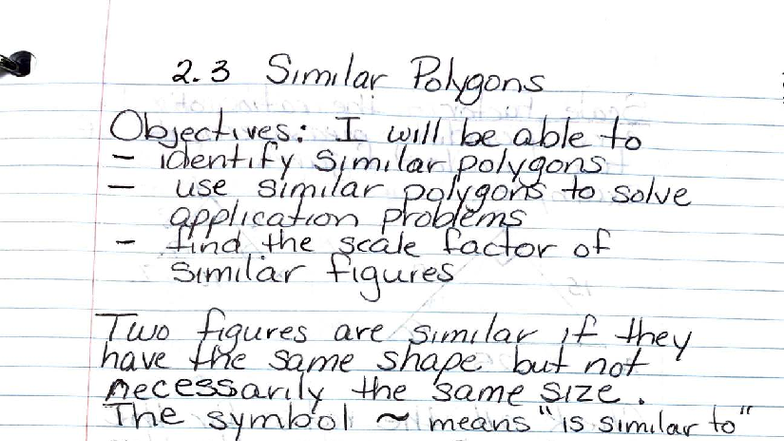 2.3 Similar Polygons
Objectives: I will be able to
- identify similar polygons
- use similar polygons to solve
application problems
- find the scale factor of
similar figures
Two figures are similar if they
have the same shape but not
necessarily the same size.
The symbol ~ means "is similar to"